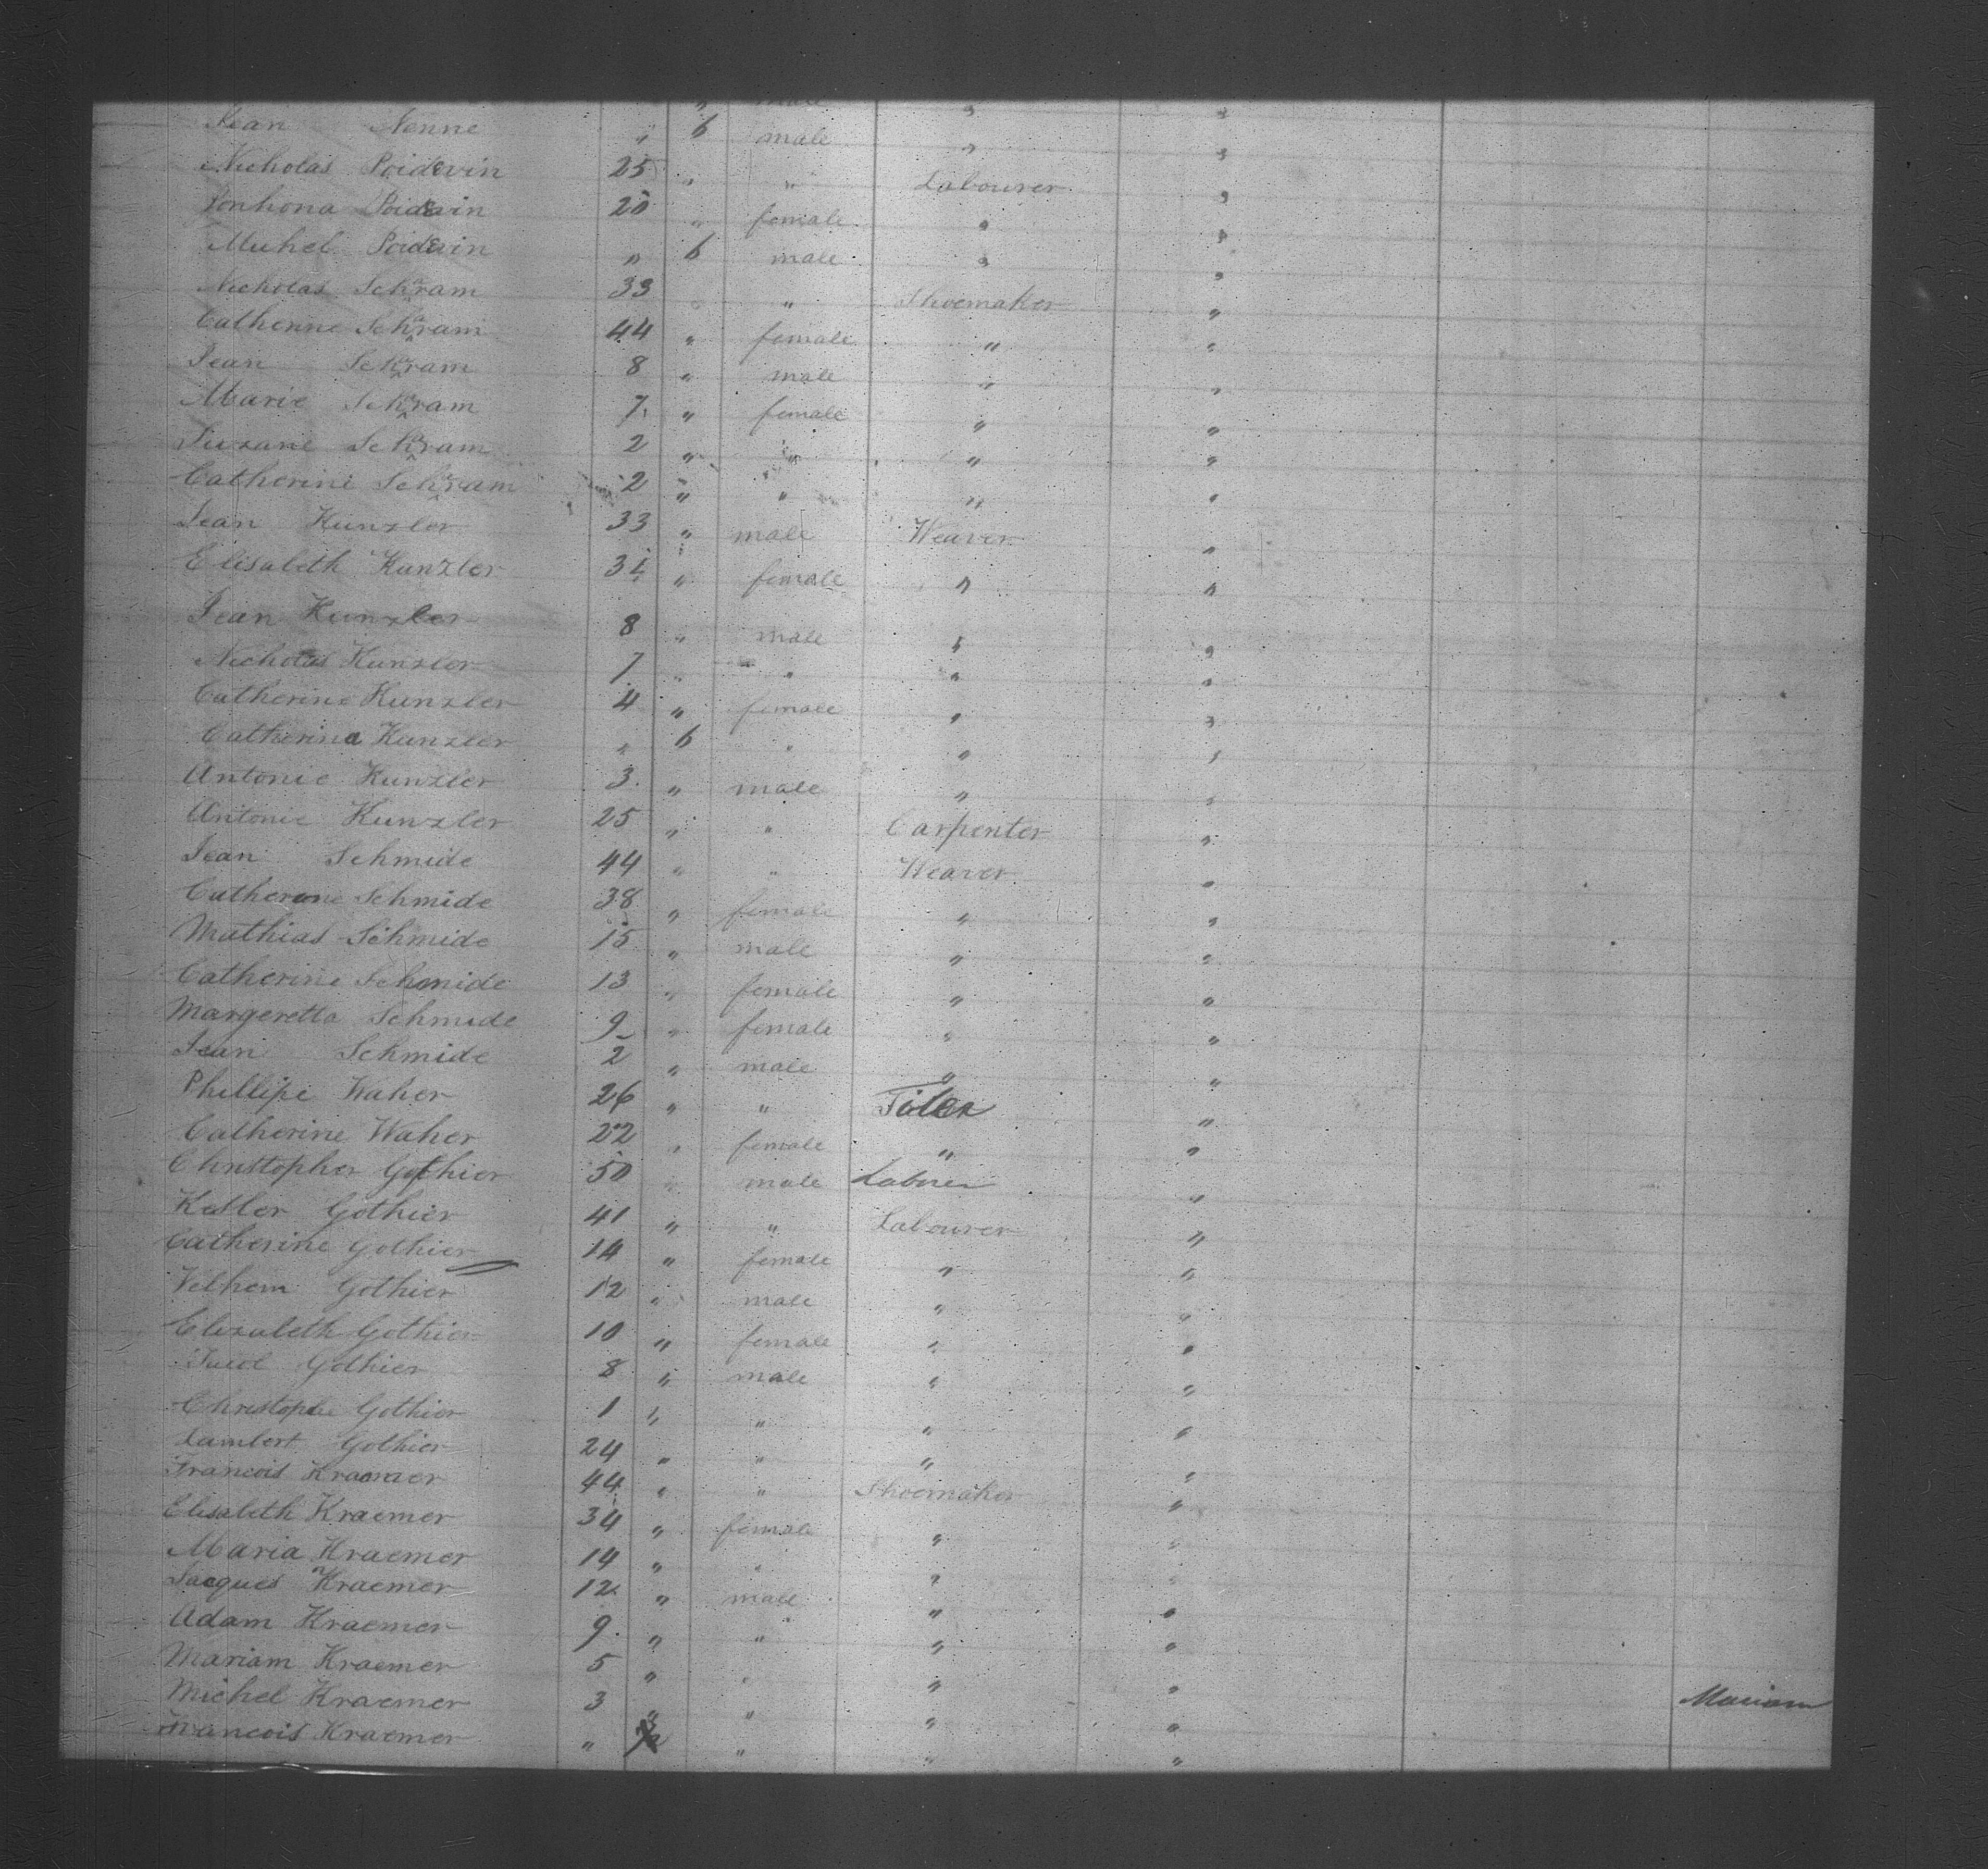 male " "
Jean Nenne " 6 male " "
Nicholas Poidevin 25 " " Labourer "
Poidevin 20 " female " "
Michel Poidevin " 6 male " "
Nicholas Schram 33 " " Shoemaker "
Catherine Schram 44 " female " "
Jean Schram 8 " male " "
Marie Schram 7 " female " "
Suzane Schram 2 " " " "
Catherine Schram 2 " " " "
Jean Kunzler 33 " male Weaver "
Elisabeth Kunzler " female " "
Jean Kunzler 8 " male " "
Nicholas Kunzler 7 " " " "
Catherine Kunzler 4 " female " "
Catherina Kunzler " 6 " " "
Antonie Kunzler 3 " male " "
Antonie Kunzler 25 " " Carpenter "
Jean Schmide 44 " " Weaver "
Catherine Schmide 38 " female " "
Mathias Schmide 15 " male " "
Catherine Schmide 13 " female " "
Margeretta Schmide 9 " female " "
Jean Schmide 2 " male " "
Phillipe Waher 26 " " Tiler "
Catherine Waher 22 " female " "
Christopher Gothier 50 " male Laborer "
Kesler Gothier 41 " " Labourer "
Catherine Gothier 14 " female " "
Velhem Gothier 12 " male " "
Elizabeth Gothier 10 " female " "
Gothier 8 " male " "
Christophe Gothier 1 " " " "
Lambert Gothier 24 " " " "
Francois Kraemer 44 " " Shoemaker "
Elisabeth Kraemer 34 " female " "
Maria Kraemer 14 " " " "
Jacques Kraemer 12 " male " "
Adam Kraemer 9 " " " "
Mariam Kraemer 5 " " " "
Michel Kraemer 3 " " " " Mariam
Francois Kraemer " " " "